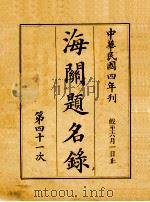 中華民國四年刊
截至六月一日止
海關題名錄
第四十一次
www.tadu.com